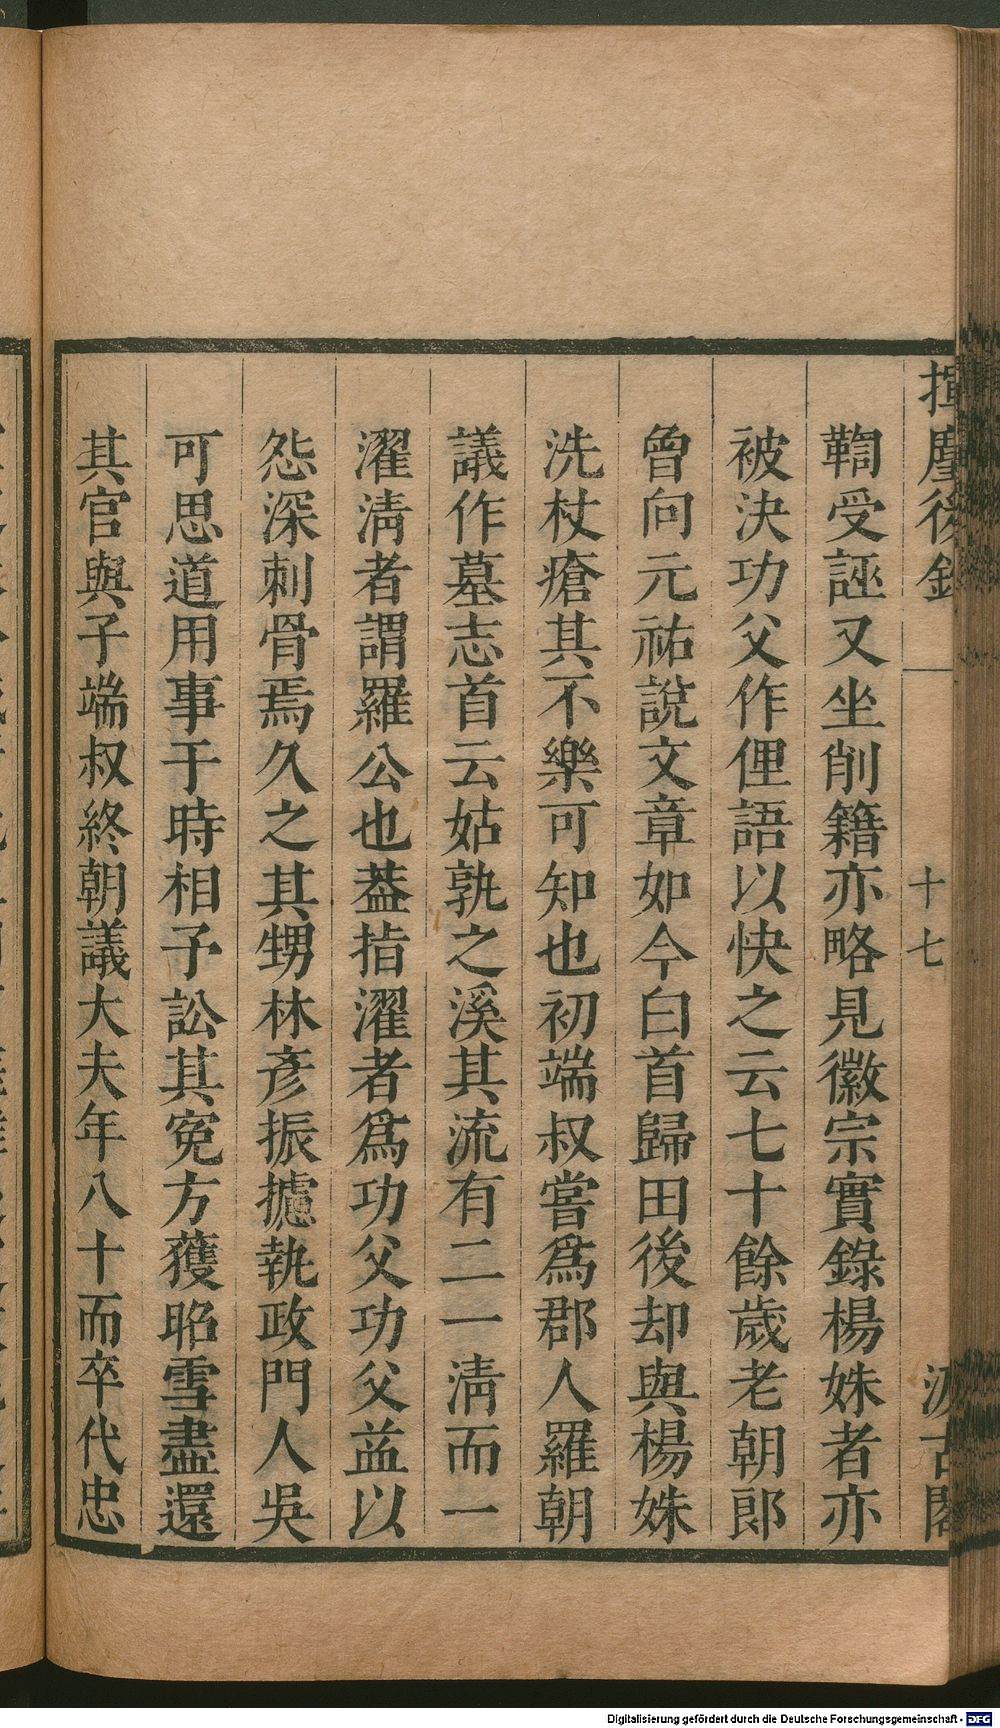 揮麈後錄
十七
汲古閣
鞫受誣又坐削籍亦略見徽宗實錄楊姝者亦
被決功父作俚語以快之云七十餘歲老朝郎
曾向元祐說文章如今白首歸田後却與楊姝
洗杖瘡其不樂可知也初端叔嘗爲郡人羅朝
議作墓志首云姑孰之溪其流有二一清而一
濯清者謂羅公也葢指濯者爲功父功父益以
怨深刺骨焉久之其甥林彥振攄執政門人吳
可思道用事于時相予訟其寃方獲昭雪盡還
其官與子端叔終朝議大夫年八十而卒代忠
Digitalisierung gefördert durch die Deutsche Forschungsgemeinschaft - DFG